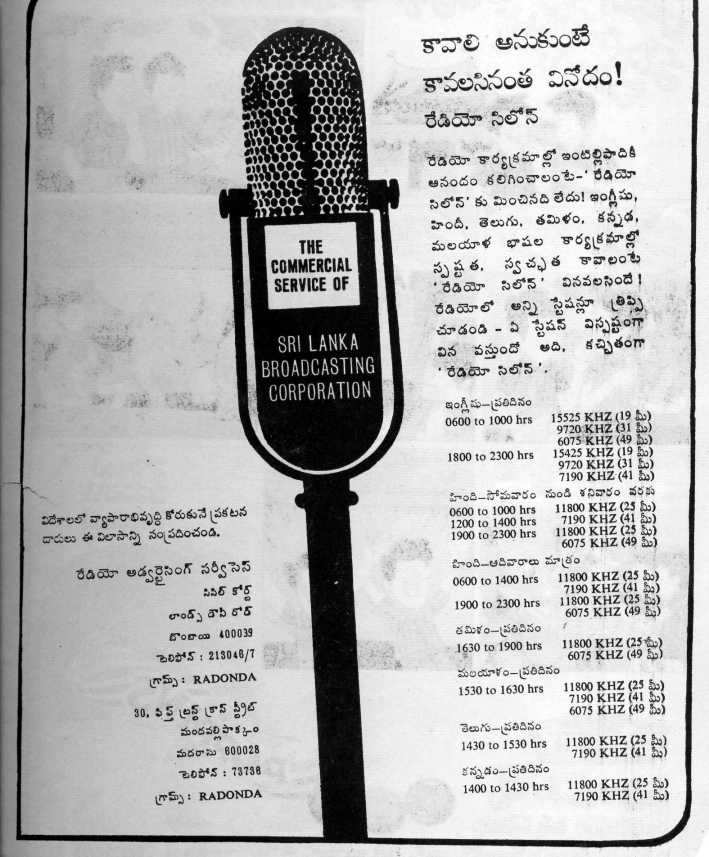 కావాలి అనుకుంటే
కావలసినంత వినోదం!
రేడియో సిలోన్
రేడియో కార్యక్రమాల్లో ఇంటిల్లిపాదికీ
ఆనందం కలిగించాలంటే-'రేడియో
సిలోన్' కు మించినది లేదు! ఇంగ్లీషు,
హిందీ, తెలుగు, తమిళం, కన్నడ,
మలయాళ భాషల కార్యక్రమాల్లో
స్పష్టత, స్వచ్ఛత కావాలంటే
'రేడియో సిలోన్' వినవలసిందే!
రేడియోలో అన్ని స్టేషన్లూ త్రిప్పి
చూడండి - ఏ స్టేషన్ విస్పష్టంగా
విన వస్తుందో అది, కచ్చితంగా
'రేడియో సిలోన్'.
THE
COMMERCIAL
SERVICE OF
SRI LANKA
BROADCASTING
CORPORATION
ఇంగ్లీషు—ప్రతిదినం
0600 to 1000 hrs 15525 KHZ (19 మీ)
9720 KHZ (31 మీ)
6075 KHZ (49 మీ)
1800 to 2300 hrs 15425 KHZ (19 మీ)
9720 KHZ (31 మీ)
7190 KHZ (41 మీ)
హింది—సోమవారం నుండి శనివారం వరకు
0600 to 1000 hrs 11800 KHZ (25 మీ)
1200 to 1400 hrs 7190 KHZ (41 మీ)
1900 to 2300 hrs 11800 KHZ (25 మీ)
6075 KHZ (49 మీ)
హింది—ఆదివారాలు మాత్రం
0600 to 1400 hrs 11800 KHZ (25 మీ)
7190 KHZ (41 మీ)
1900 to 2300 hrs 11800 KHZ (25 మీ)
6075 KHZ (49 మీ)
తమిళం—ప్రతిదినం
1630 to 1900 hrs 11800 KHZ (25 మీ)
6075 KHZ (49 మీ)
మలయాళం—ప్రతిదినం
1530 to 1630 hrs 11800 KHZ (25 మీ)
7190 KHZ (41 మీ)
6075 KHZ (49 మీ)
తెలుగు—ప్రతిదినం
1430 to 1530 hrs 11800 KHZ (25 మీ)
7190 KHZ (41 మీ)
కన్నడం—ప్రతిదినం
1400 to 1430 hrs 11800 KHZ (25 మీ)
7190 KHZ (41 మీ)
విదేశాలలో వ్యాపారాభివృద్ధి కోరుకునే ప్రకటన
దారులు ఈ విలాసాన్ని సంప్రదించండి.
రేడియో అడ్వర్టైసింగ్ సర్వీసెస్
సిసిల్ కోర్ట్
లాండ్స్ డౌన్ రోడ్
బొంబాయి 400039
టెలిఫోన్ : 213046/7
గ్రామ్స్ : RADONDA
30, ఫిఫ్త్ ట్రస్ట్ క్రాస్ స్ట్రీట్
మందవల్లిపాక్కం
మదరాసు 600028
టెలిఫోన్ : 73736
గ్రామ్స్ : RADONDA